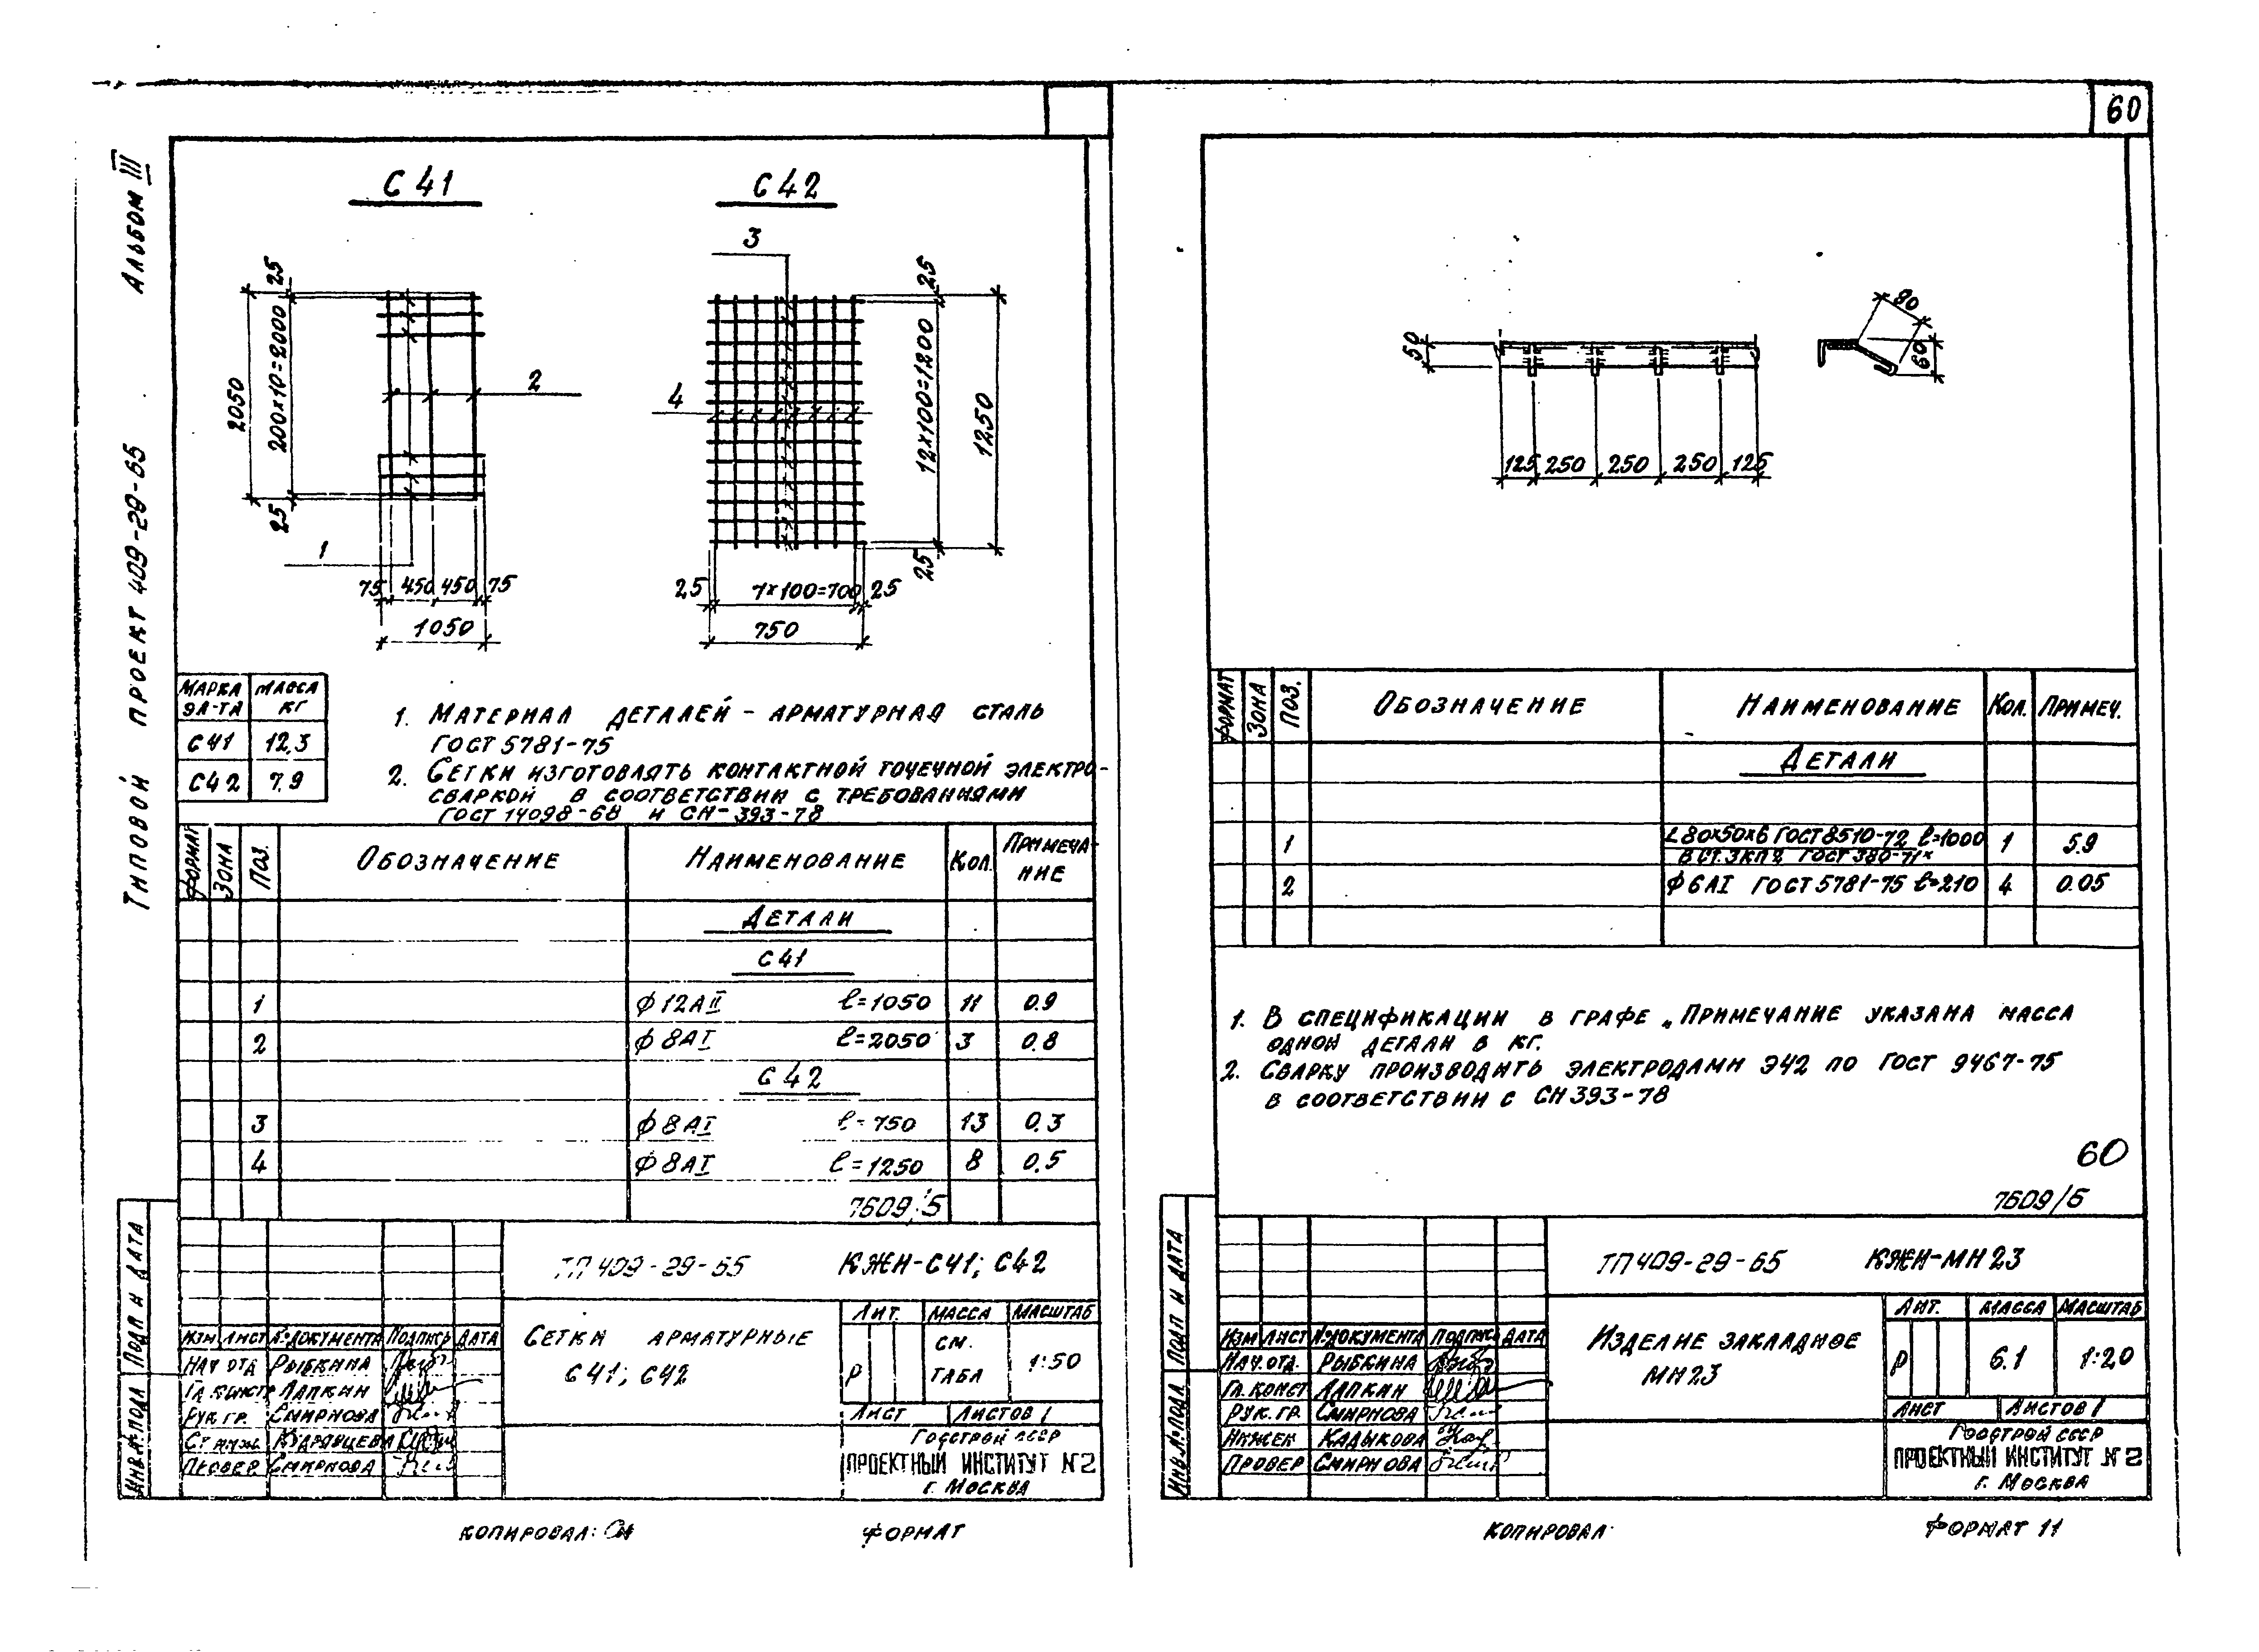 60
Типовой проект 409-29-65 Альбом III
С 41
С 42
3
4
2
1
25
200х10=2000
2050
25
75 450 450 75
1050
25
12х100=1200
1250
25
25 7х100=700 25
750
Марка эл-та Масса кг
С41 12,3
С42 7,9
1. Материал деталей - арматурная сталь
ГОСТ 5781-75
2. Сетки изготовлять контактной точечной электро-
сваркой в соответствии с требованиями
ГОСТ 14098-68 и СН-393-78
Формат Зона Поз. Обозначение Наименование Кол. Примечание
Детали
С41
1 ф12АII ℓ=1050 11 0.9
2 ф8АI ℓ=2050 3 0.8
С42
3 ф8АI ℓ=750 13 0.3
4 ф8АI ℓ=1250 8 0.5
7609/5
ТП 409-29-65 КЖН-С41; С42
Сетки арматурные
С41; С42
Лит. Масса Масштаб
Р см. табл 1:50
Лист Листов 1
Изм Лист № документа Подпись Дата
Нач отд Рыбкина
Гл. конст Лапкин
Рук. гр. Смирнова
Ст инж.
Провер Смирнова
Госстрой СССР
ПРОЕКТНЫЙ ИНСТИТУТ №2
г. Москва
Инв.№ подл Подп и дата
Копировал:
Формат
50
125 250 250 250 125
80
60
Формат Зона Поз. Обозначение Наименование Кол. Примеч.
Детали
1 L80х50х6 ГОСТ 8510-72 ℓ=1000 1 5.9
В Ст.3кп2 ГОСТ 380-71*
2 ф6АI ГОСТ 5781-75 ℓ=210 4 0.05
1. В спецификации в графе „Примечание указана масса
одной детали в кг.
2. Сварку производить электродами Э42 по ГОСТ 9467-75
в соответствии с СН 393-78
60
7609/5
ТП 409-29-65 КЖН-МН23
Изделие закладное
МН23
Лит. Масса Масштаб
Р 6.1 1:20
Лист Листов 1
Изм Лист № документа Подпись Дата
Нач. отд. Рыбкина
Гл. конст Лапкин
Рук. гр. Смирнова
Инжен Кадыкова
Провер Смирнова
Госстрой СССР
ПРОЕКТНЫЙ ИНСТИТУТ №2
г. Москва
Инв.№ подл Подп и дата
Копировал:
Формат 11